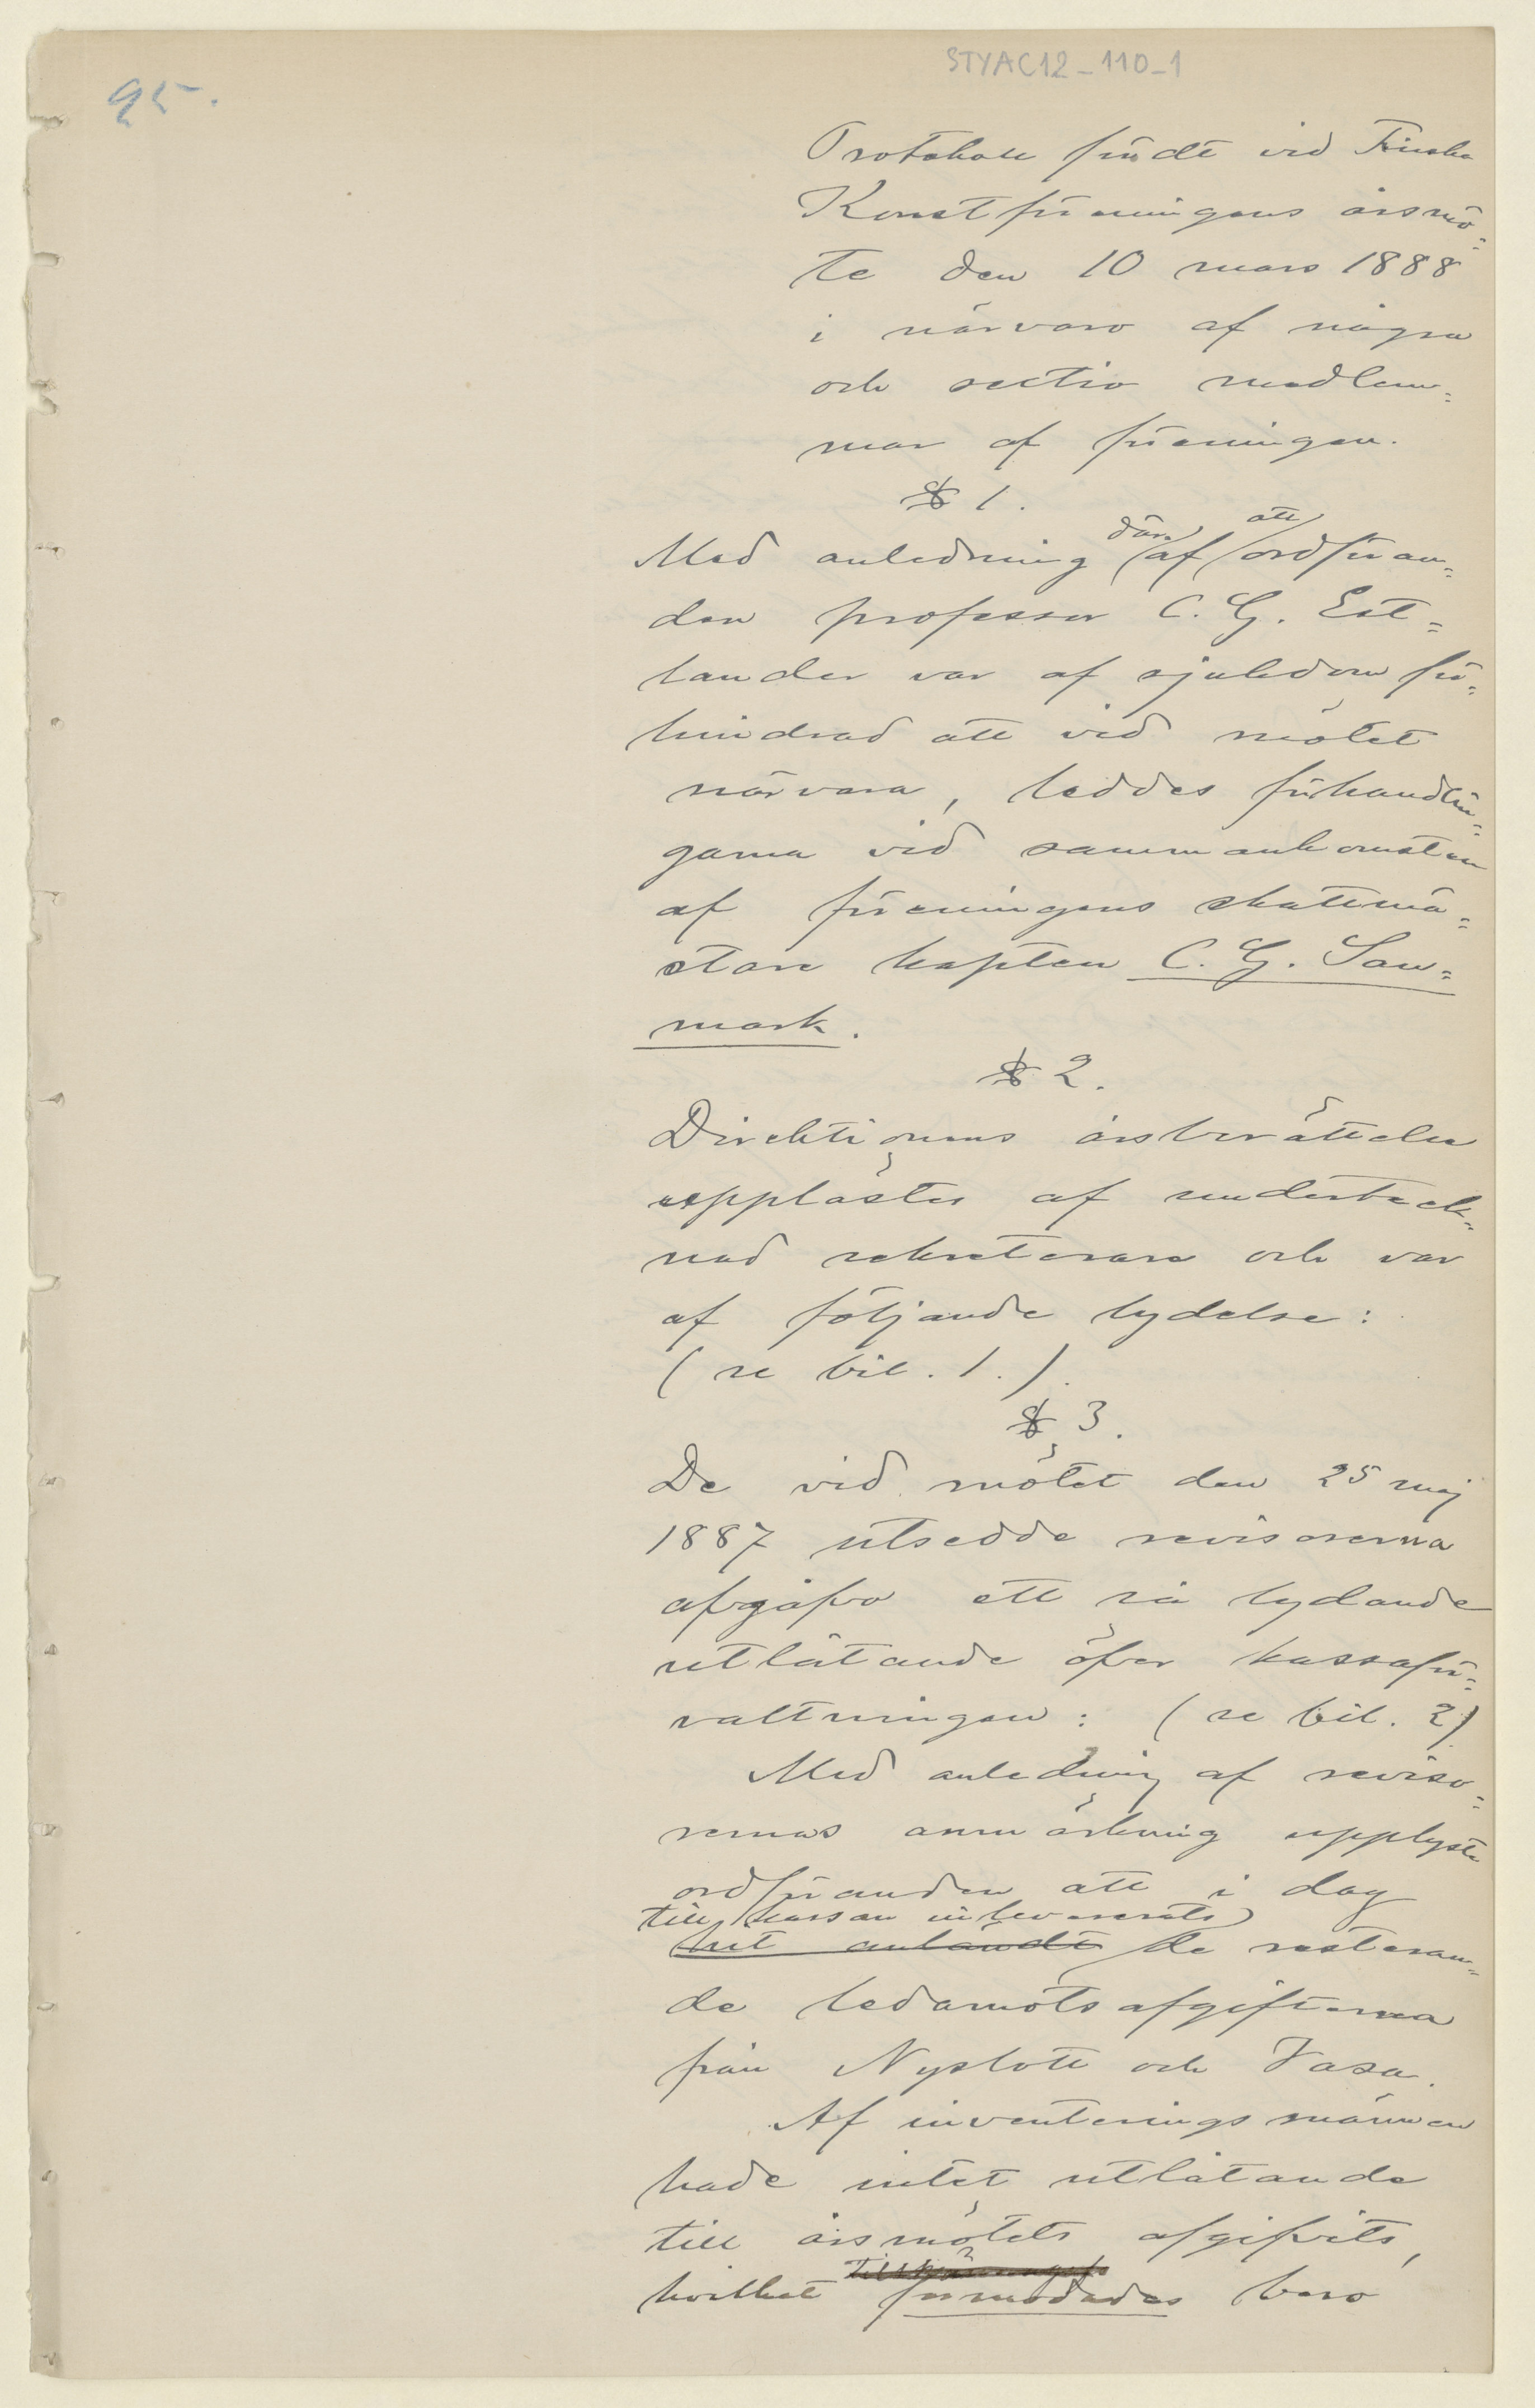 STYAC12_110_1
95.
Protokoll fördt vid Finska
Konstföreningens årsmö=
te den 10 mars 1888
i närvaro af några
och sextio medlem=
mar af föreningen.
§ 1.
Med anledning däraf att ordföran=
den professor C. G. Est=
lander var af sjukdom för=
hindrad att vid mötet
närvara, leddes förhandlin=
garna vid sammankomsten
af föreningens skattmä=
stare kapten C. G. San=
mark.
§ 2.
Direktionens årsberättelse
upplästes af undérteck=
nad sekreterare och var
af följande lydelse:
(se bil. 1.).
§ 3.
De vid mötet den 25 maj
1887 utsedde revisorerna
afgåfvo ett så lydande
utlåtande öfver kassaför=
valtningen: (se bil. 2)
Med anledning af reviso=
rernas anmärkning upplyste
ordföranden att i dag
till kassan inlevererats
hit anländt de resteran=
de ledamotsafgifterna
från Nyslott och Vasa.
Af inventeringsmännen
hade intet utlåtande
till årsmötets afgifvits,
hvilket förmodades bero